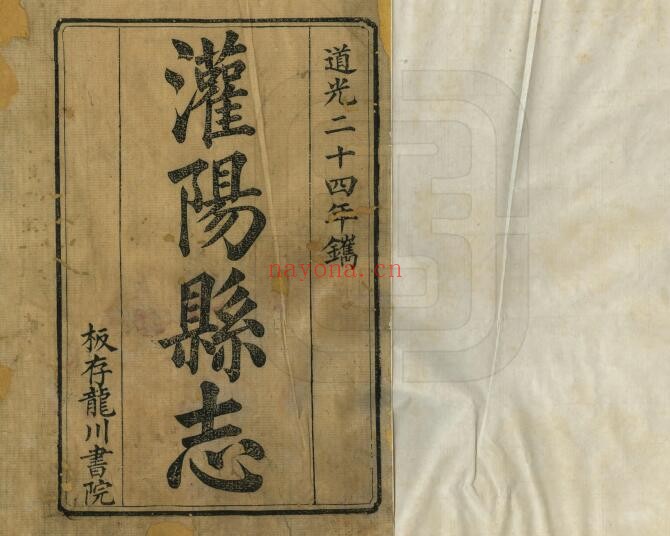 道光二十四年鐫
灌陽縣志
板存龍川書院
nayona.cn